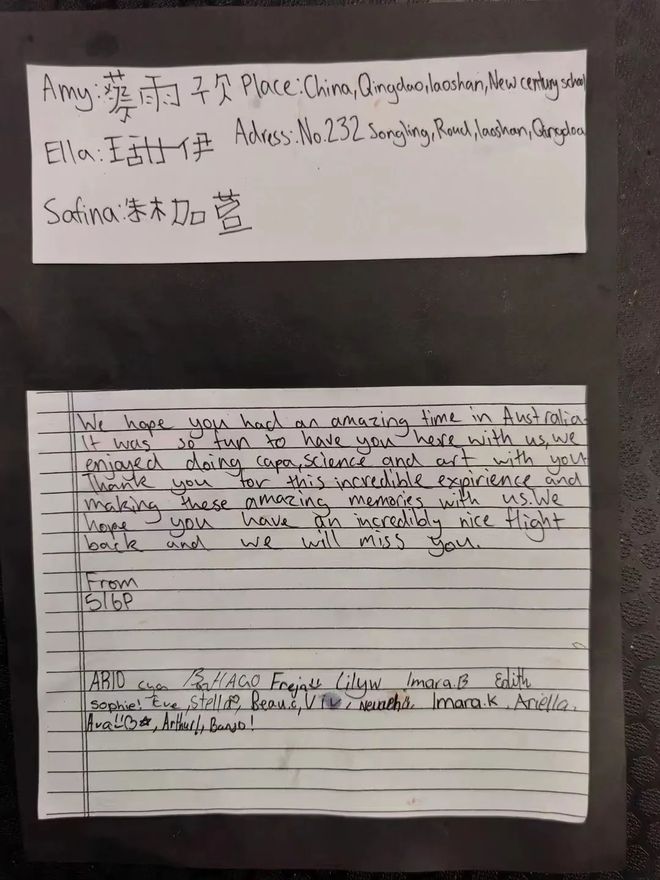 Amy:蔡雨 Place:China,Qingdao,laoshan,New century school
Adress:No.232 Songling,Roud,laoshan,Qingdoa
Ella:甜伊
Safina:林加萱
We hope you had an amazing time in Australia.
It was so fun to have you here with us,we
enjoyed doing capa,science and art with you
Thank you for this incredible expirience and
making these amazing memories with us.We
hope you have an incredibly nice flight
back and we will miss you.
From
5/6P
ARLO HAGO Freja Lilyw Imara.B Edith
sophie! Eve, Stella, Beau.c, Viv, Imara.K, Ariella.
Ava, Arthur!, Banjo!